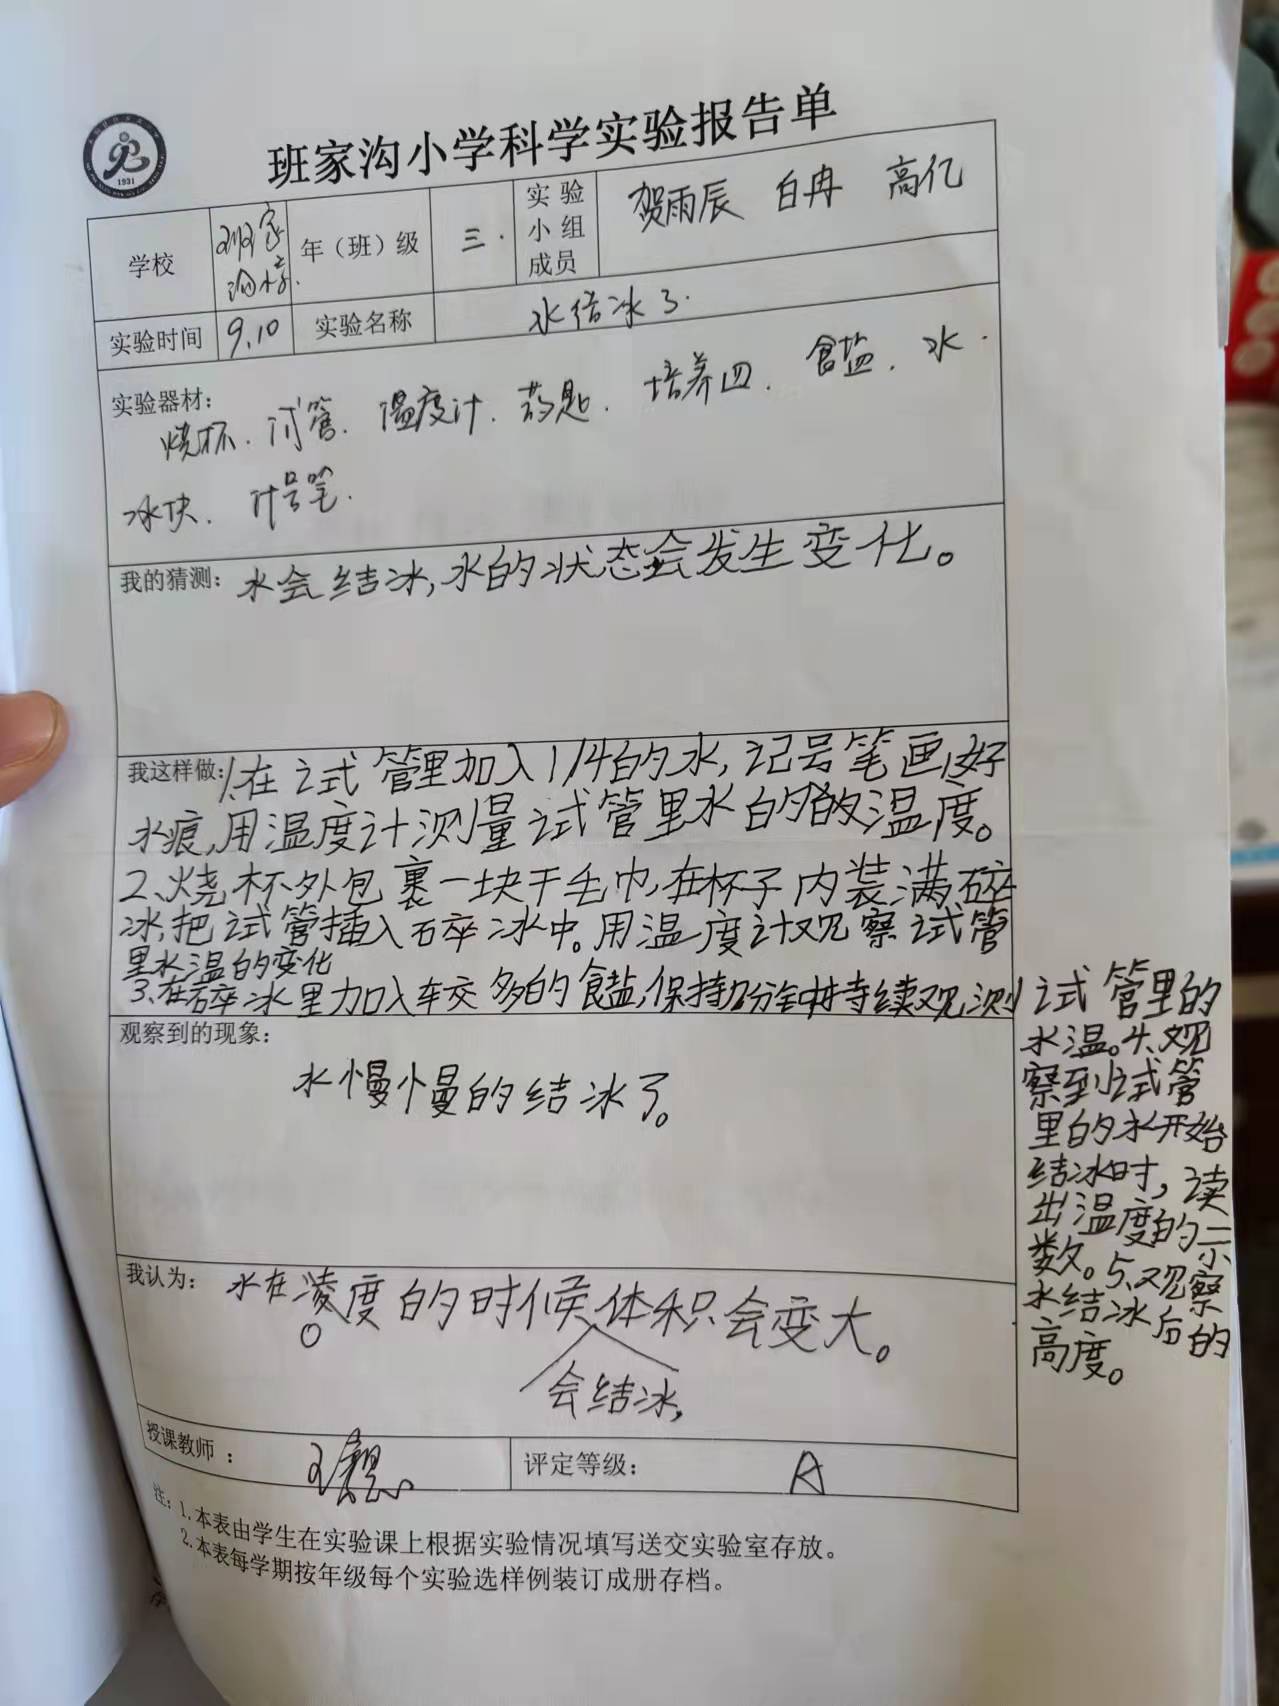 1931
班家沟小学科学实验报告单
学校 班家沟小学 年（班）级 三. 实验小组成员 贺雨辰 白冉 高亿
实验时间 9.10 实验名称 水结冰了.
实验器材：
烧杯. 试管. 温度计. 药匙. 培养皿. 食盐. 水.
冰块. 计号笔.
我的猜测： 水会结冰,水的状态会发生变化。
我这样做： 1.在试管里加入1/4的水,记号笔画好
水痕,用温度计测量试管里水的的温度。
2、烧杯外包裹一块干毛巾,在杯子内装满碎
冰,把试管插入碎冰中。用温度计观察试管
里水温的变化
3、在碎冰里加入较多的食盐,保持几分钟持续观测试管里的
水温。4、观
察到试管
里的水开始
结冰时,读
出温度的示
数。5、观察
水结冰后的
高度。
观察到的现象：
水慢慢的结冰了。
我认为： 水在凌度的时候体积会变大。
0
会结冰,
授课教师： 评定等级： A
注：1.本表由学生在实验课上根据实验情况填写送交实验室存放。
2.本表每学期按年级每个实验选样例装订成册存档。